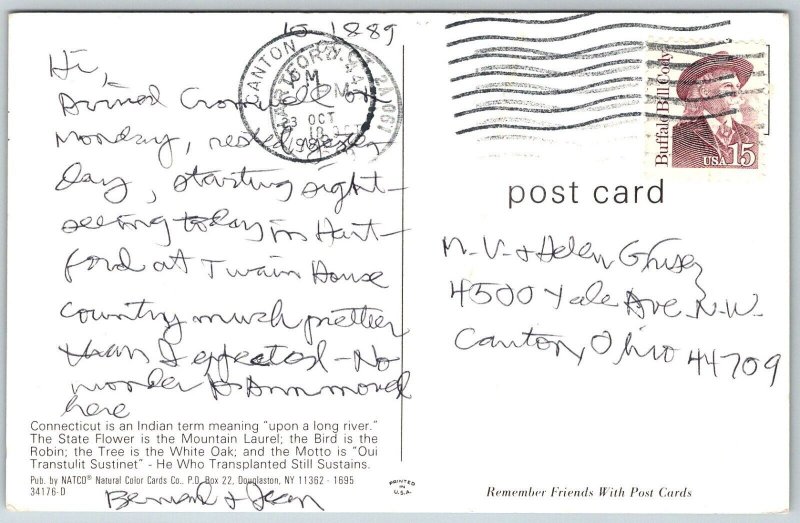 10 1889
Hi,
Arrived Cromwell on
Monday, rested yester
day, starting sight-
seeing today in Hart-
ford at Twain House
Country much prettier
than I expected - No
wonder moved
here
Connecticut is an Indian term meaning "upon a long river."
The State Flower is the Mountain Laurel; the Bird is the
Robin; the Tree is the White Oak; and the Motto is "Oui
Transtulit Sustinet" - He Who Transplanted Still Sustains.
Pub. by NATCO® Natural Color Cards Co., P.O. Box 22, Douglaston, NY 11362 - 1695
34176-D
Bernard & Jean
PRINTED IN
U.S.A.
CANTON
HARTFORD
OCT
Buffalo Bill Cody
USA 15
post card
M. V. & Helen
4500 Yale Ave. N.W.
Canton, Ohio 44709
Remember Friends With Post Cards